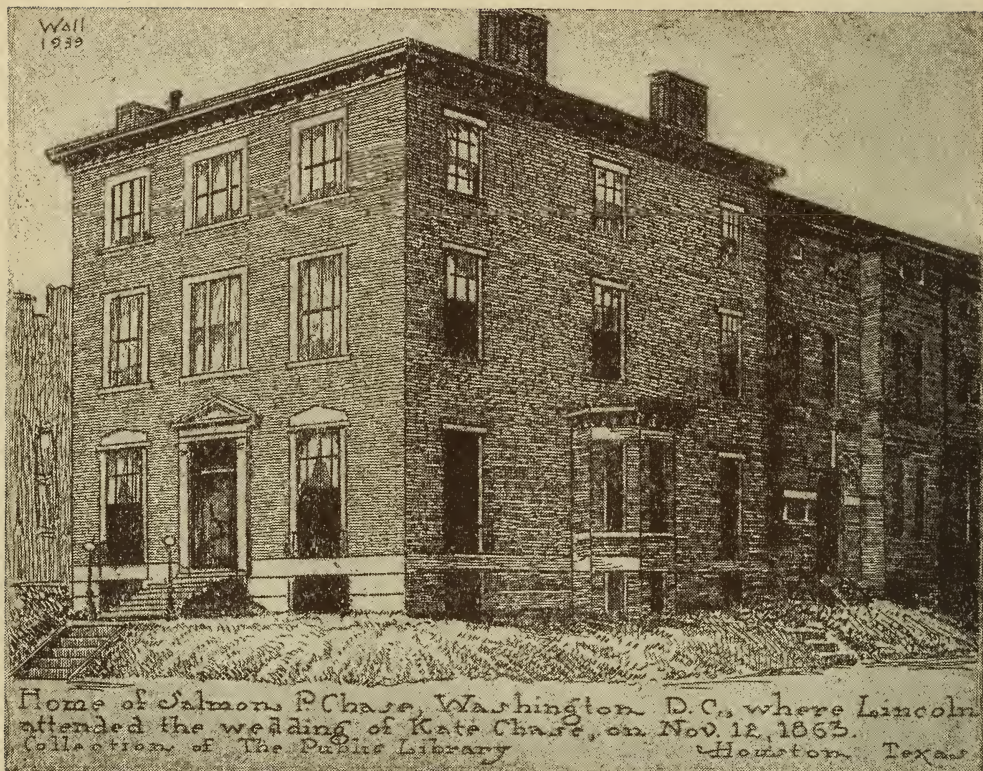 Wall
1939
Home of Salmon P. Chase, Washington D.C., where Lincoln
attended the wedding of Kate Chase, on Nov. 12, 1863.
Collection of The Public Library Houston Texas